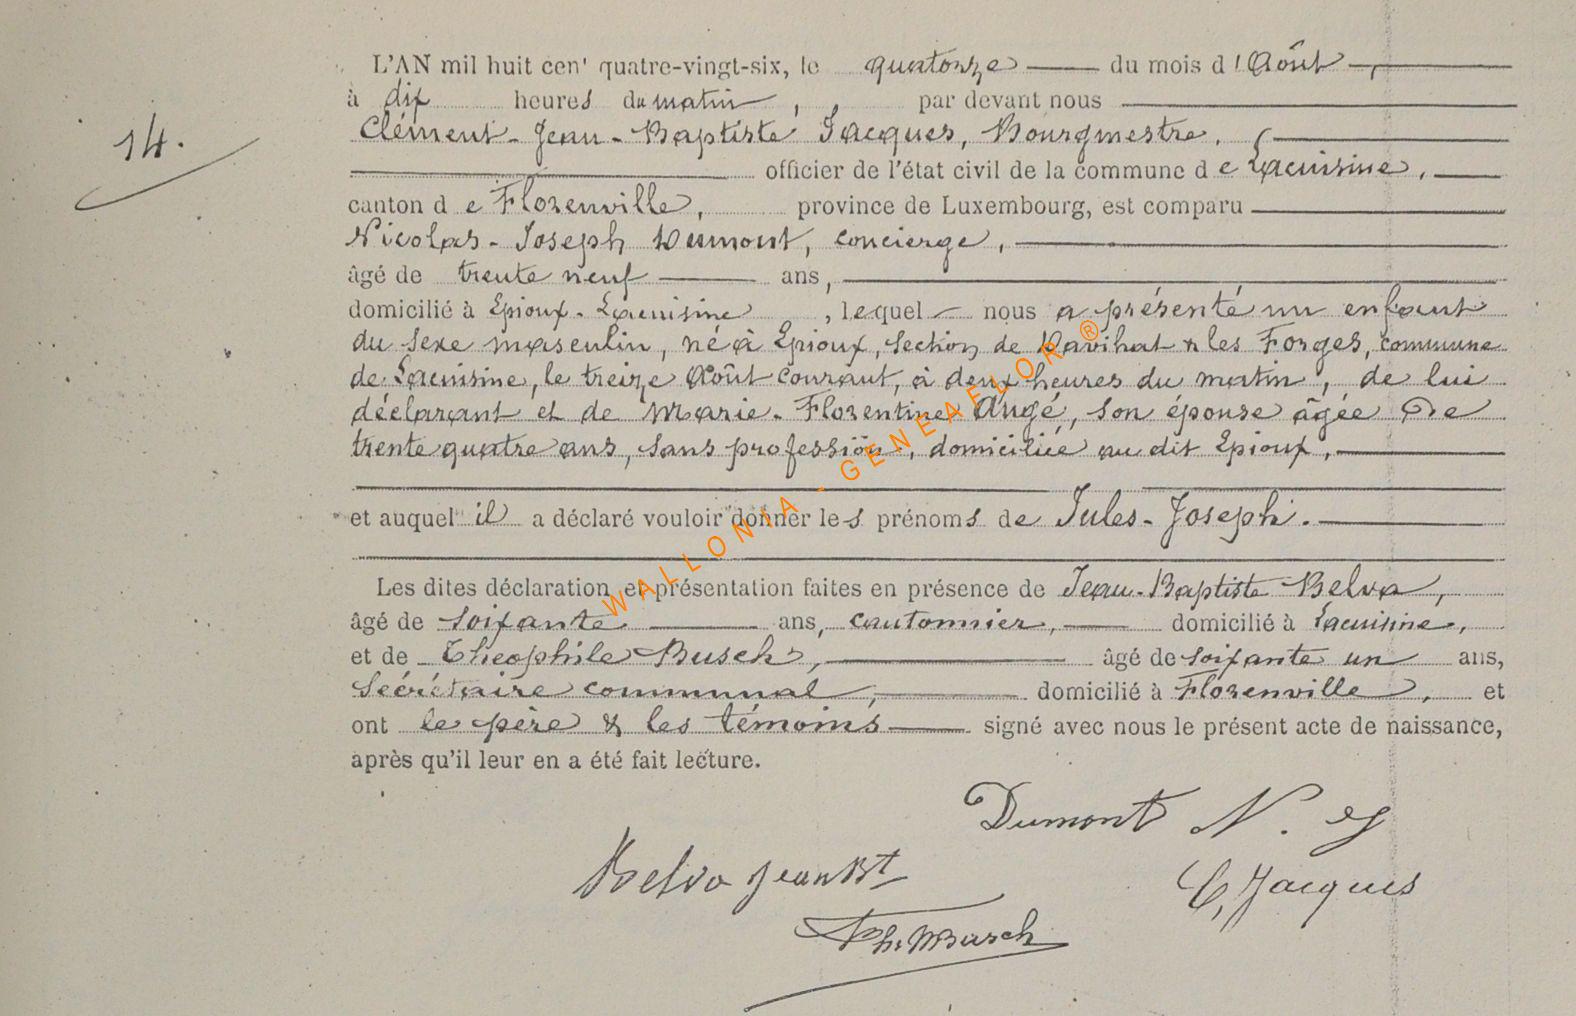 14.
L'AN mil huit cen' quatre-vingt-six, le quatorze du mois d'Août,
à dix heures du matin, par devant nous
Clément-Jean-Baptiste Jacques, Bourgmestre,
officier de l'état civil de la commune de Lacuisine,
canton de Florenville, province de Luxembourg, est comparu
Nicolas-Joseph Dumont, concierge,
âgé de trente neuf ans,
domicilié à Epioux-Lacuisine, lequel nous a présenté un enfant
du sexe masculin, né à Epioux, section de & les Forges, commune
de Lacuisine, le treize Août courant, à deux heures du matin, de lui
déclarant et de Marie-Florentine Augé, son épouse âgée de
trente quatre ans, sans profession, domiciliée au dit Epioux,
et auquel il a déclaré vouloir donner les prénoms de Jules-Joseph.
Les dites déclaration et présentation faites en présence de Jean-Baptiste Belva,
âgé de soixante ans, cantonnier, domicilié à Lacuisine,
et de Théophile Busch, âgé de soixante un ans,
Secrétaire communal, domicilié à Florenville, et
ont le père & les témoins signé avec nous le présent acte de naissance,
après qu'il leur en a été fait lecture.
Dumont N. J
Belva Jean Bt
C, Jacques
Th. Busch
WALLONIA - GENEAFLOR ®